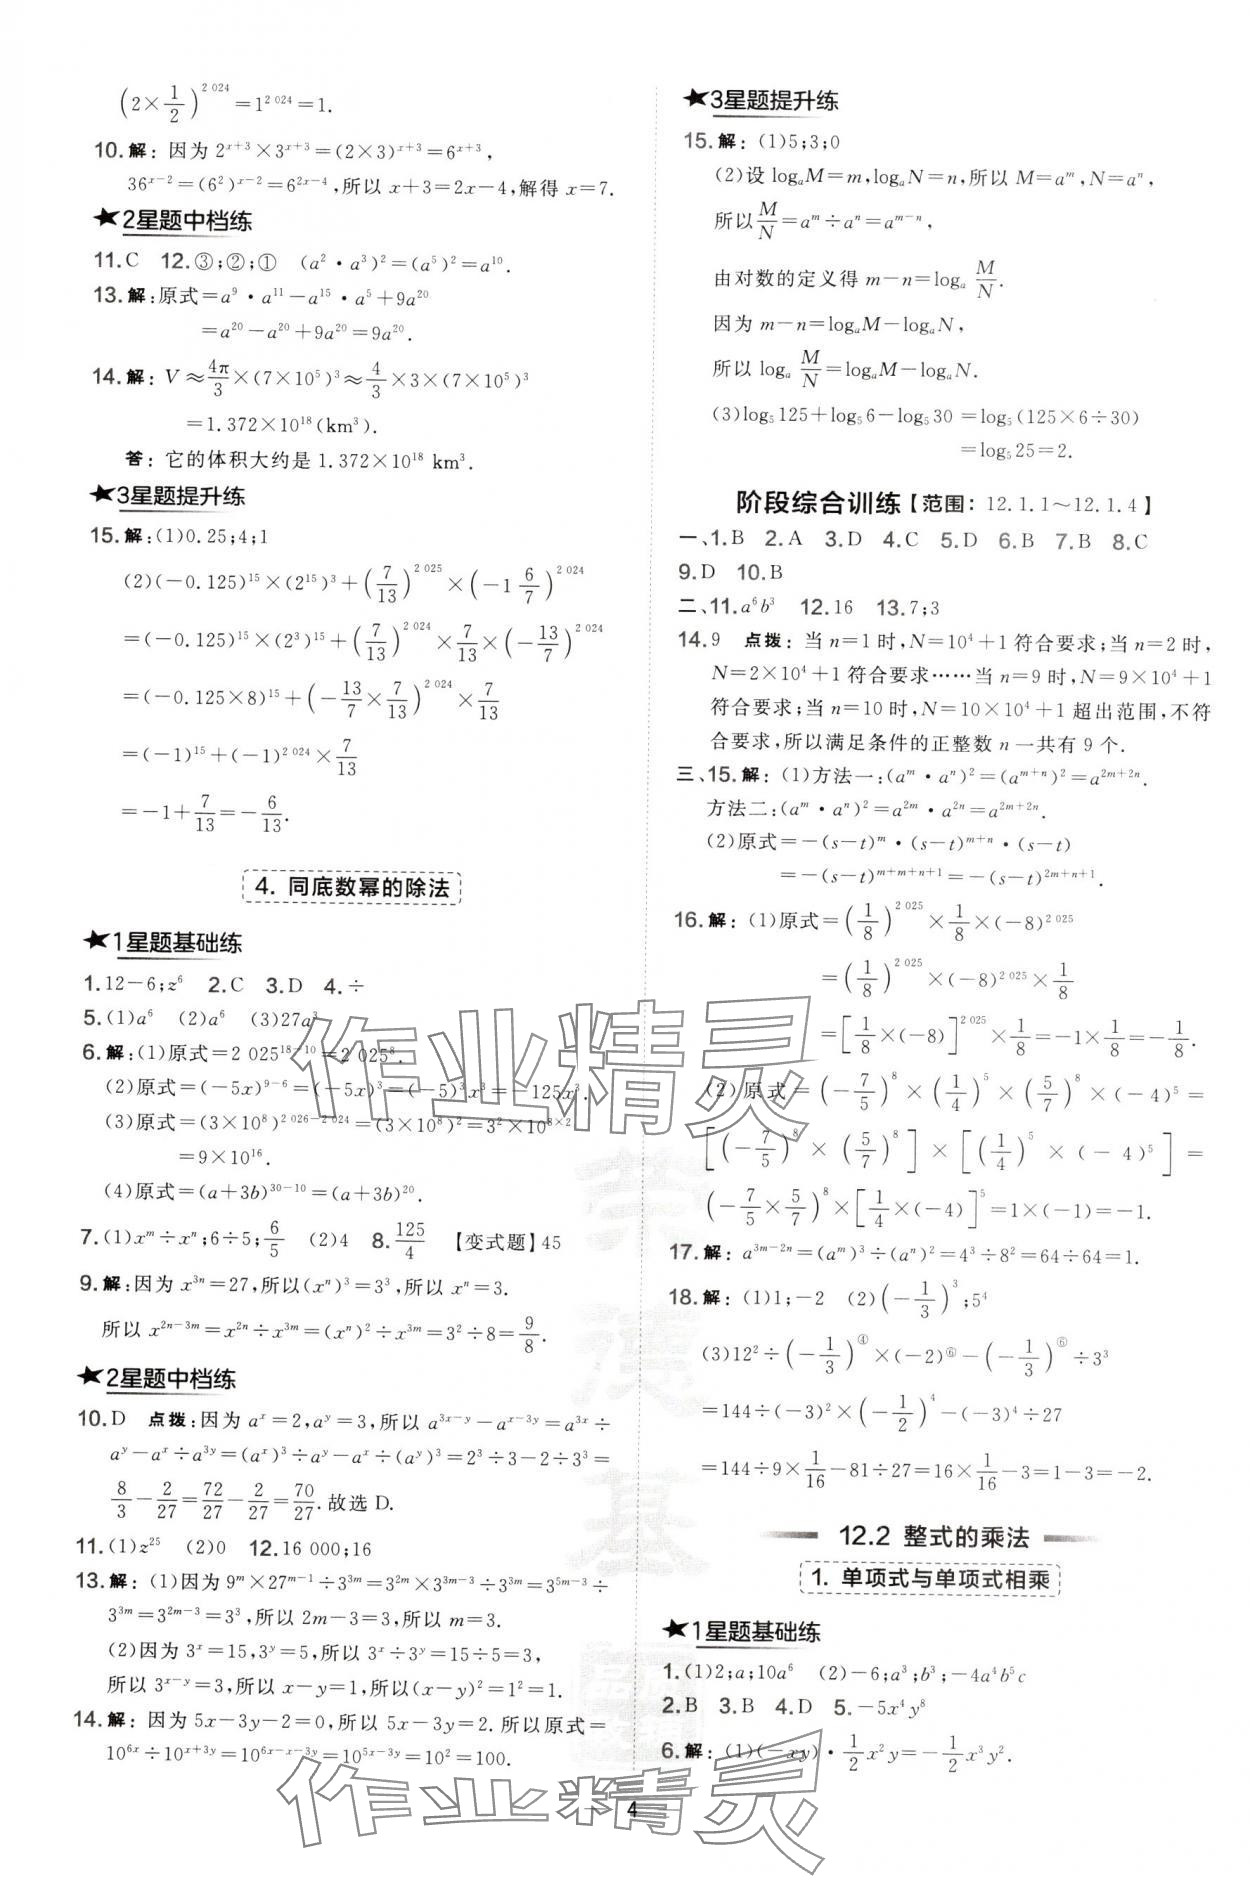 (2×1/2)^{2 024}=1^{2 024}=1.
10.解：因为 2^{x+3}×3^{x+3}=(2×3)^{x+3}=6^{x+3}，
36^{x-2}=(6²)^{x-2}=6^{2x-4},所以 x+3=2x-4,解得 x=7.
★2星题中档练
11.C 12.③;②;① (a²·a³)²=(a⁵)²=a^{10}.
13.解:原式=a⁹·a^{11}-a^{15}·a⁵+9a^{20}
=a^{20}-a^{20}+9a^{20}=9a^{20}.
14.解：V≈4π/3×(7×10⁵)³≈4/3×3×(7×10⁵)³
=1.372×10^{18}(km³).
答：它的体积大约是 1.372×10^{18} km³.
★3星题提升练
15.解:(1)0.25;4;1
(2)(-0.125)^{15}×(2^{15})³+(7/13)^{2 025}×(-1 6/7)^{2 024}
=(-0.125)^{15}×(2³)^{15}+(7/13)^{2 024}×7/13×(-13/7)^{2 024}
=(-0.125×8)^{15}+(-13/7×7/13)^{2 024}×7/13
=(-1)^{15}+(-1)^{2 024}×7/13
=-1+7/13=-6/13.
4. 同底数幂的除法
★1星题基础练
1.12-6;z⁶ 2.C 3.D 4.÷
5.(1)a⁶ (2)a⁶ (3)27a³
6.解:(1)原式=2 025^{18-10}=2 025⁸.
(2)原式=(-5x)^{9-6}=(-5x)³=(-5)³x³=-125x³.
(3)原式=(3×10⁸)^{2 026-2 024}=(3×10⁸)²=3²×10^{8×2}
=9×10^{16}.
(4)原式=(a+3b)^{30-10}=(a+3b)^{20}.
7.(1)x^m÷x^n;6÷5;6/5 (2)4 8.125/4 【变式题】45
9.解:因为 x^{3n}=27,所以(x^n)³=3³,所以 x^n=3.
所以 x^{2n-3m}=x^{2n}÷x^{3m}=(x^n)²÷x^{3m}=3²÷8=9/8.
★2星题中档练
10.D 点拨:因为 a^x=2,a^y=3,所以 a^{3x-y}-a^{x-3y}=a^{3x}÷
a^y-a^x÷a^{3y}=(a^x)³÷a^y-a^x÷(a^y)³=2³÷3-2÷3³=
8/3-2/27=72/27-2/27=70/27.故选 D.
11.(1)z^{25} (2)0 12.16 000;16
13.解:(1)因为 9^m×27^{m-1}÷3^{3m}=3^{2m}×3^{3m-3}÷3^{3m}=3^{5m-3}÷
3^{3m}=3^{2m-3}=3³,所以 2m-3=3,所以 m=3.
(2)因为 3^x=15,3^y=5,所以 3^x÷3^y=15÷5=3,
所以 3^{x-y}=3,所以 x-y=1,所以(x-y)²=1²=1.
14.解：因为 5x-3y-2=0,所以 5x-3y=2.所以原式=
10^{6x}÷10^{x+3y}=10^{6x-x-3y}=10^{5x-3y}=10²=100.
★3星题提升练
15.解：(1)5;3;0
(2)设 log_a M=m,log_a N=n,所以 M=a^m,N=a^n,
所以M/N=a^m÷a^n=a^{m-n},
由对数的定义得 m-n=log_a M/N.
因为 m-n=log_a M-log_a N,
所以 log_a M/N=log_a M-log_a N.
(3)log₅125+log₅6-log₅30 =log₅(125×6÷30)
=log₅25=2.
阶段综合训练【范围：12.1.1～12.1.4】
一、1.B 2.A 3.D 4.C 5.D 6.B 7.B 8.C
9.D 10.B
二、11.a⁶b³ 12.16 13.7;3
14.9 点拨：当 n=1 时,N=10⁴+1 符合要求;当 n=2 时,
N=2×10⁴+1 符合要求……当 n=9 时,N=9×10⁴+1
符合要求;当 n=10 时,N=10×10⁴+1 超出范围,不符
合要求,所以满足条件的正整数 n 一共有 9 个.
三、15.解：(1)方法一:(a^m·a^n)²=(a^{m+n})²=a^{2m+2n}.
方法二:(a^m·a^n)²=a^{2m}·a^{2n}=a^{2m+2n}.
(2)原式=-(s-t)^m·(s-t)^{m+n}·(s-t)
=-(s-t)^{m+m+n+1}=-(s-t)^{2m+n+1}.
16.解：(1)原式=(1/8)^{2 025}×1/8×(-8)^{2 025}
=(1/8)^{2 025}×(-8)^{2 025}×1/8
=[1/8×(-8)]^{2 025}×1/8=-1×1/8=-1/8.
(2)原式=(-7/5)⁸×(1/4)⁵×(5/7)⁸×(-4)⁵=
[(-7/5)⁸×(5/7)⁸]×[(1/4)⁵×(-4)⁵]=
(-7/5×5/7)⁸×[1/4×(-4)]⁵=1×(-1)=-1.
17.解：a^{3m-2n}=(a^m)³÷(a^n)²=4³÷8²=64÷64=1.
18.解：(1)1;-2 (2)(-1/3)³;5⁴
(3)12²÷(-1/3)^④×(-2)^⑥-(-1/3)^⑥÷3³
=144÷(-3)²×(-1/2)⁴-(-3)⁴÷27
=144÷9×1/16-81÷27=16×1/16-3=1-3=-2.
12.2 整式的乘法
1. 单项式与单项式相乘
★1星题基础练
1.(1)2;a;10a⁶ (2)-6;a³;b³;-4a⁴b⁵c
2.B 3.B 4.D 5.-5x⁴y⁸
6.解:(1)(-xy)·1/2x²y=-1/2x³y².
4
作业精灵
作业精灵